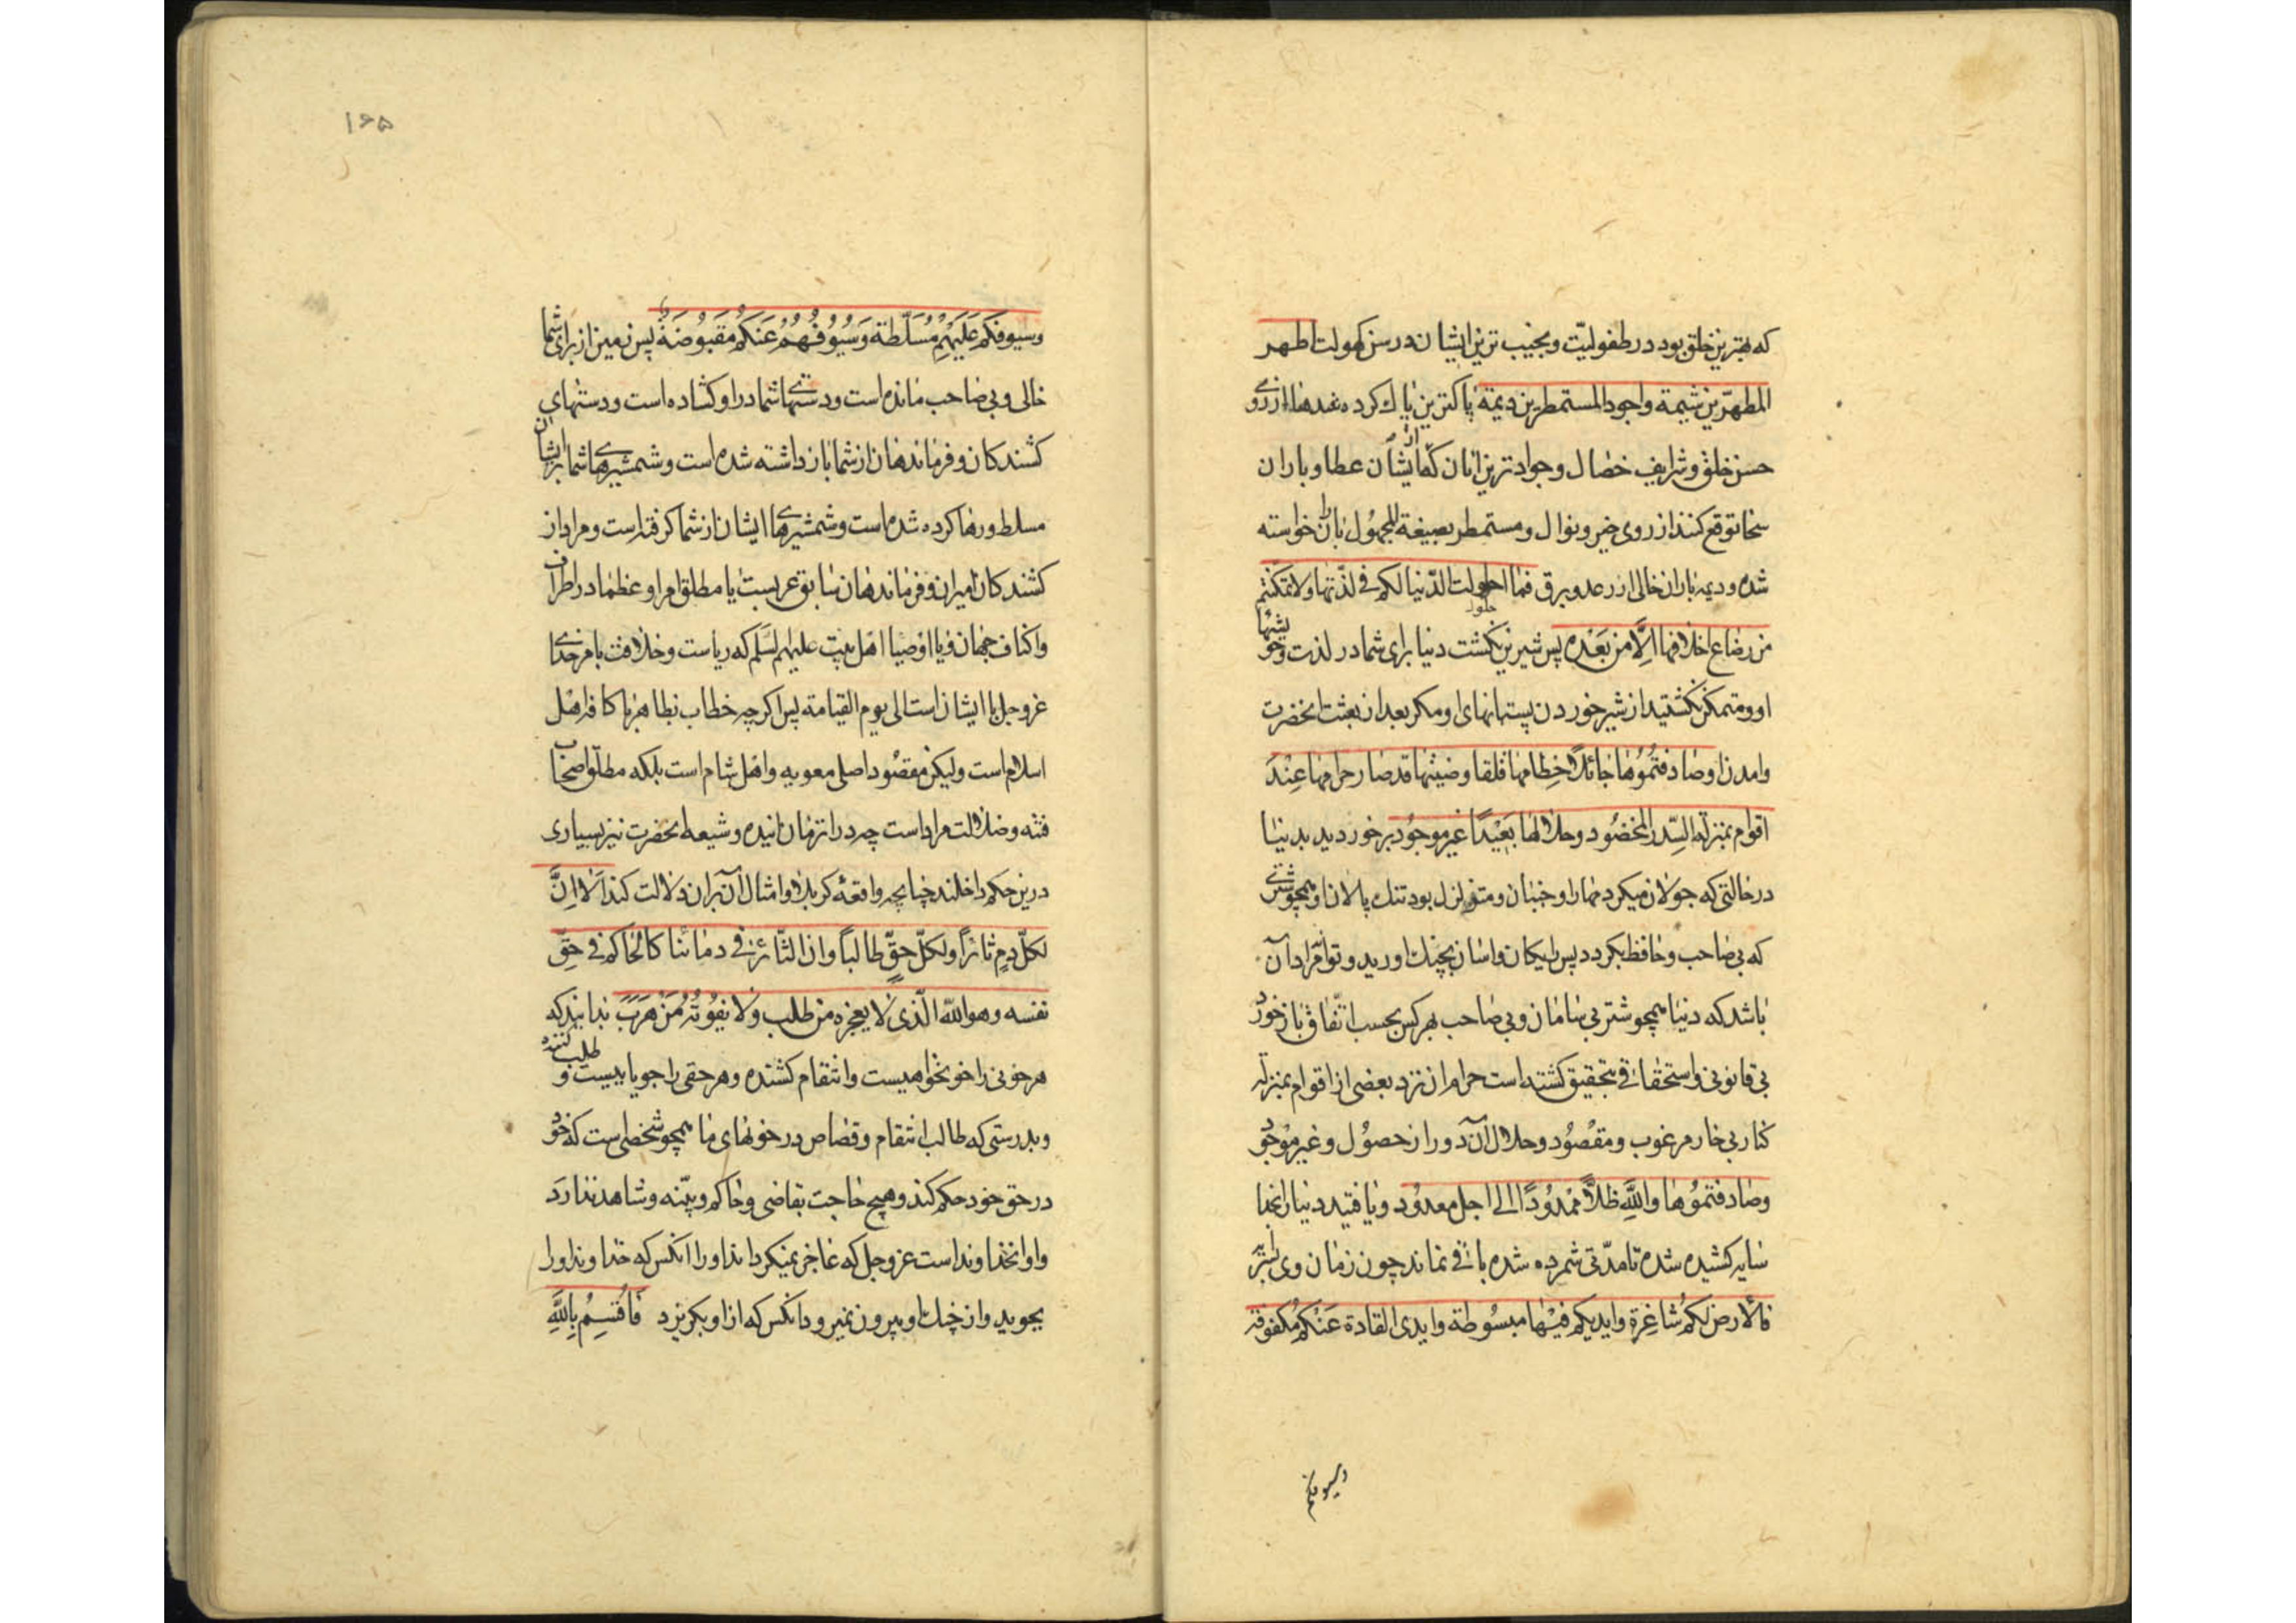 که بهترین خلق بود در طفولیّت و نجیب ترین ایشان در سن کهولت اطهر
المطهّرین شیمة واجود المستمطرین دیمة پاکترین پاک کرده شدها از روی
حسن خلق وشرایف خصال وجوادترین آنان که از ایشان عطا وباران
سخا توقع کنند از روی خیر ونوال ومستمطر بصیغة المجهول باران خواسته
شده ودیمه باران خالی از رعد وبرق فما احلولت الدّنیا لکم فی لذّتها ولا تمکنتم
من رضاع اخلافها الّا من بَعْده پس شیرین نگشت دنیا برای شما در لذت وخوشیها
او ومتمکن نگشتید از شیر خوردن پستانهای او مگر بعد از بعثت انحضرت
وامدن او صادفتُمُوها جائلاً خِطامها قلقا وضینها قد صار حرامها عِنْدَ
اقوام بمنزلة السِّدر المخضُود وحلالها بَعیْدًا غیر موجُود برخوردید بدنیا
در حالتی که جولان میکرد مهار او جنبان ومتزلزل بود تنک پالان او همچو شتری
که بی صاحب وحافظ بگردد پس رایکان واسان بچنک اورید وتواند مراد آن
باشد که دنیا همچو شتر بی سامان وبی صاحب بهر کس بحسب اتّفاق بازخورد
بی قانونی واستحقاقی بتحقیق گشته است حرام ان نزد بعضی از اقوام بمنزله
کنار بی خار مرغوب ومقصُود وحلال آن دور از حصُول وغیر موجُود
وصادفتمُوها واللَّهِ ظلاًّ ممْدُودًا الی اجل معدُود ویافتید دنیا را بخدا
سایه کشیده شده تا مدّتی شمرده شده باقی نماند چون زمان وی بسر
فالأرض لکم شاغِرة وایدیکم فیْها مبسُوطة وایدی القادة عَنکم مکفوفة
وسیوفکم
۱۶۵
وسیوفکم عَلَیْهِمْ مُسَلَّطة وَسُیُوفُهُمْ عَنکُم مَقبُوضَةٌ پس زمین از برای شما
خالی وبی صاحب مانده است ودستهای شما در او کشاده است ودستهای
کشندکان وفرماندهان از شما بازداشته شده است وشمشیرهای شما بر ایشان
مسلط ورها کرده شده است وشمشیرهای ایشان از شما کرفته است ومراد از
کشندکان امیران وفرماندهان سابق عربست یا مطلق امرا وعظما در اطراف
واکناف جهان ویا اوصیا اهل بیت علیهم السَلم که ریاست وخلافت بامر خدای
عزوجل با ایشان است الی یوم القیامة پس اکرچه خطاب بظاهر با کافه اهل
اسلام است ولیکن مقصُود اصلی معویه واهل شام است بلکه مطلق اصحاب
فتنه وضلالت مراد است چه در از زمان اینده وشیعه انحضرت نیز بسیاری
درین حکم داخلند چنانچه واقعهٔ کربلا وامثال آن بران دلالت کند اَلا اِنَّ
لکلّ دمٍ ثائرًا ولکلّ حقٍّ طالباً وان الثّائر فی دمائنا کالحاکم فی حقّ
نفسه وهو اللّه الّذی لا یعجزه من طلب ولا یفُوتُهُ مَنْ هَرَبَ بدانید که
هر خونی را خونخواهیست وانتقام کشنده وهر حقی را جویاییست وطلب کننده
وبدرستی که طالب انتقام وقصاص در خونهای ما همچو شخصی است که خود
در حق خود حکم کند وهیچ حاجت بقاضی وحاکم وبیّنه وشاهد ندارد
واو انخداوند است عزوجل که عاجز نمیکرداند او را انکس که خداوند او را
بجوید واز چنک او بیرون نمیرود انکس که از او بکریزد فَاُقسِمُ بِاللَّهِ